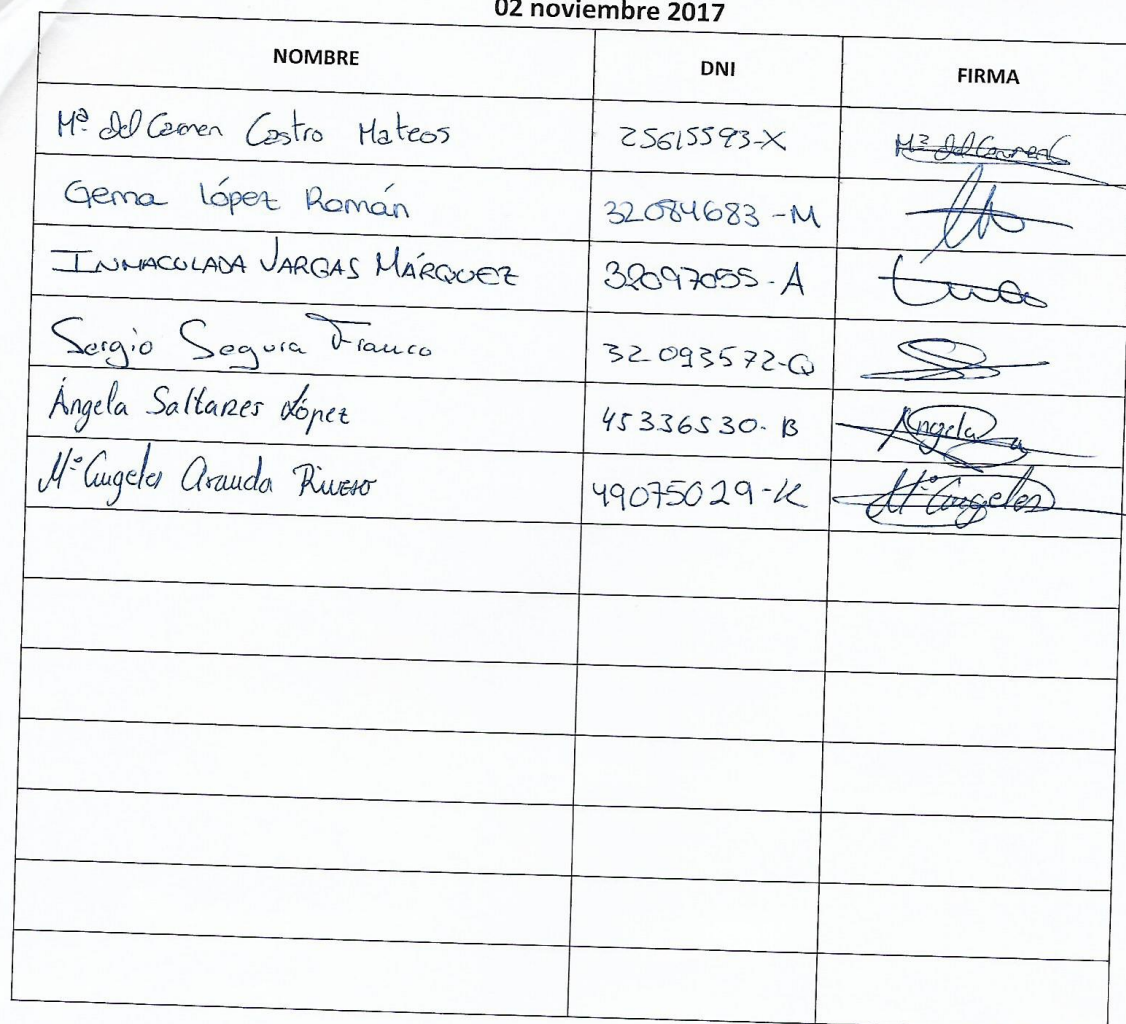 02 noviembre 2017
NOMBRE DNI FIRMA
Mª del Carmen Castro Mateos 25615593-X Mª del Carmen C
Gema López Román 32084683-M
INMACULADA VARGAS MÁRQUEZ 32097055-A
Sergio Segura Franco 32093572-Q
Ángela Saltares López 45336530-B Angela
Mª Angeles Aranda Rivero 49075029-K Mª Angeles